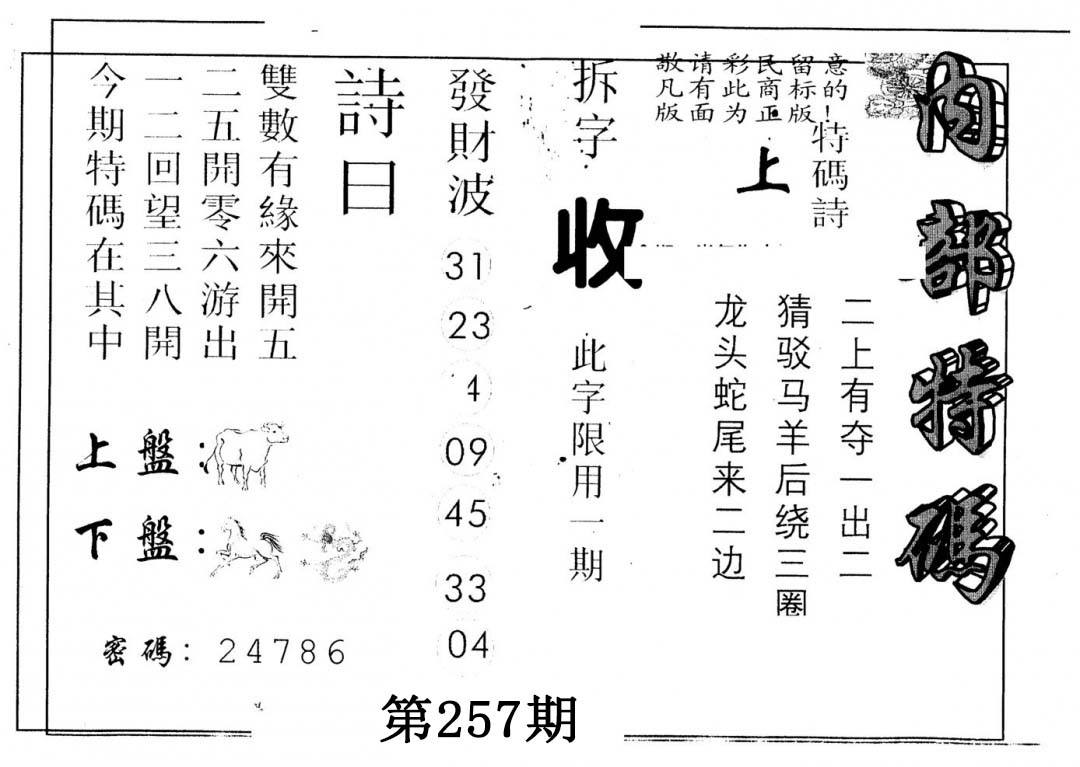 内部特碼
敬请彩民留意
凡有此商标的
版面为正版!
特碼詩
上
二上有夺一出二
猜驳马羊后绕三圈
龙头蛇尾来二边
拆字
收
此字限用一期
發財波
31
23
4
09
45
33
04
詩曰
雙數有緣來開五
二五開零六游出
一二回望三八開
今期特碼在其中
上盤:
下盤:
密碼: 24786
第257期